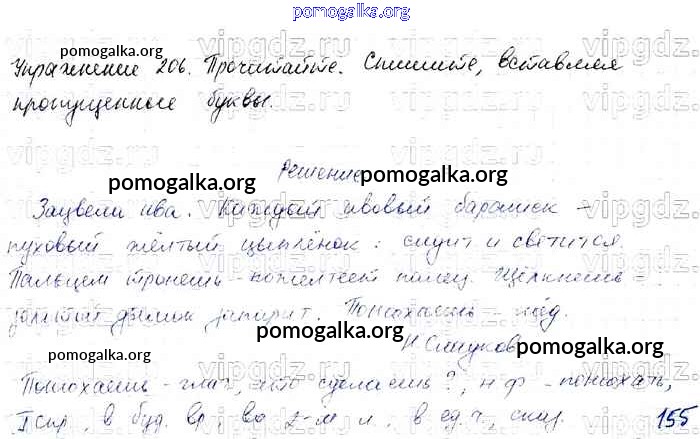 pomogalka.org
pomogalka.org pomogalka.org
Упражнение 206. Прочитайте. Спишите, вставляя
пропущенные буквы.
Решение
pomogalka.org pomogalka.org
Зацвели ива. Каждый ивовый барашек –
пуховый жёлтый цыплёнок: сидит и светится.
Пальцем тронешь – пожелтеет палец. Щёлкнешь –
золотой дымок запарит. Понюхаешь – мёд.
pomogalka.org pomogalka.org
Н Сладков
pomogalka.org pomogalka.org
Понюхаешь – глаг., что сделаешь?, н ф – понюхать,
I спр, в буд. вр, во 2-м л, в ед ч,
155
vipgdz.ru